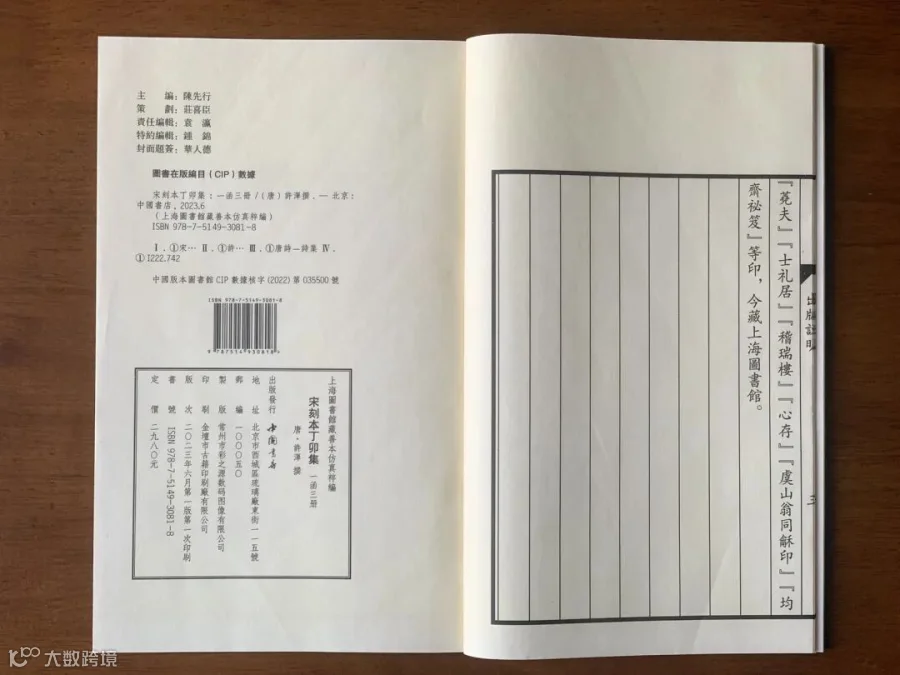 主　　編：陳先行
策　　劃：莊喜臣
責任編輯：袁　瀛
特約編輯：鍾　錦
封面題簽：華人德
圖書在版編目（CIP）數據
宋刻本丁卯集：一函三册 /（唐）許渾撰．— 北京：
中國書店，2023.6
（上海圖書館藏善本仿真粹編）
ISBN 978-7-5149-3081-8
Ⅰ．①宋… Ⅱ．①許… Ⅲ．①唐詩—詩集 Ⅳ．
①I222.742
中國版本圖書館 CIP 數據核字 (2022) 第 035500 號
ISBN 978-7-5149-3081-8
9 787514 930818 >
上海圖書館藏善本仿真粹編
宋刻本丁卯集　一函三册
唐·許渾　撰
出版發行　中國書店
地　址　北京市西城區琉璃廠東街一一五號
郵　編　一〇〇〇五〇
製　版　常州市彩之源数码图像有限公司
印　刷　金壇市古籍印刷廠有限公司
版　次　二〇二三年六月第一版第一次印刷
書　號　ISBN 978-7-5149-3081-8
定　價　二九八〇元
出版説明
三
『蕘夫』『士礼居』『稽瑞樓』『心存』『虞山翁同龢印』『均
齋祕笈』等印，今藏上海圖書館。
大数跨境